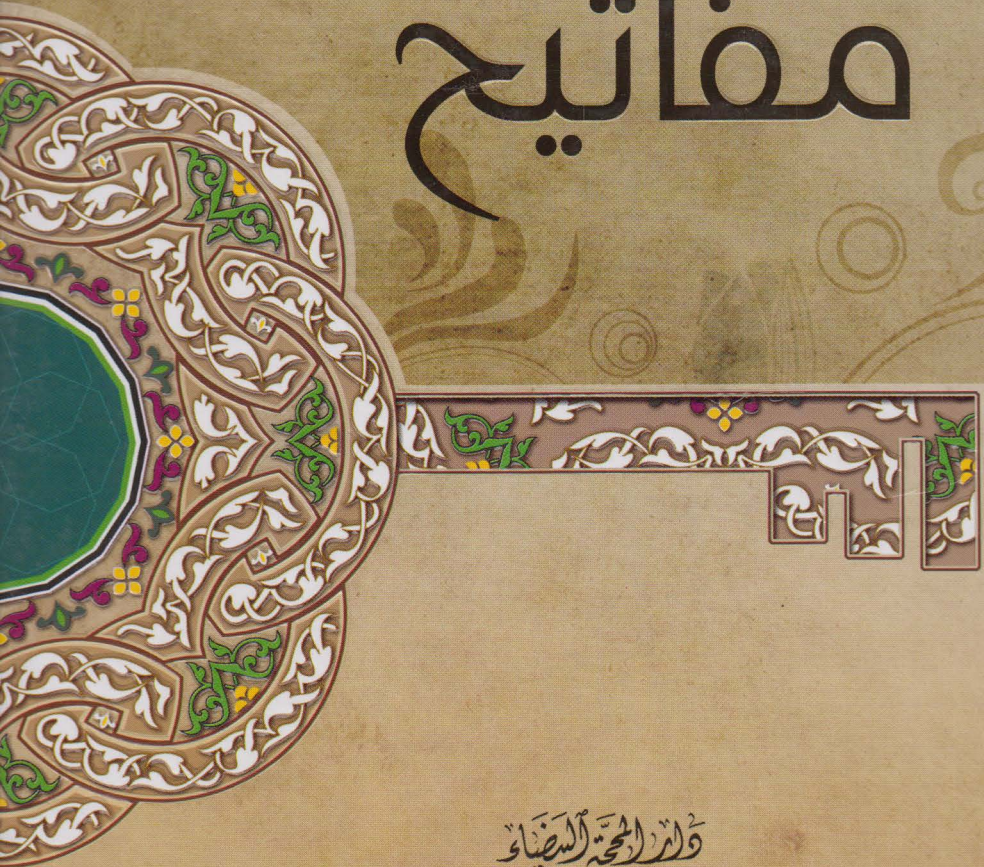 مفاتيح
دَار المحجَّة البيضَاء